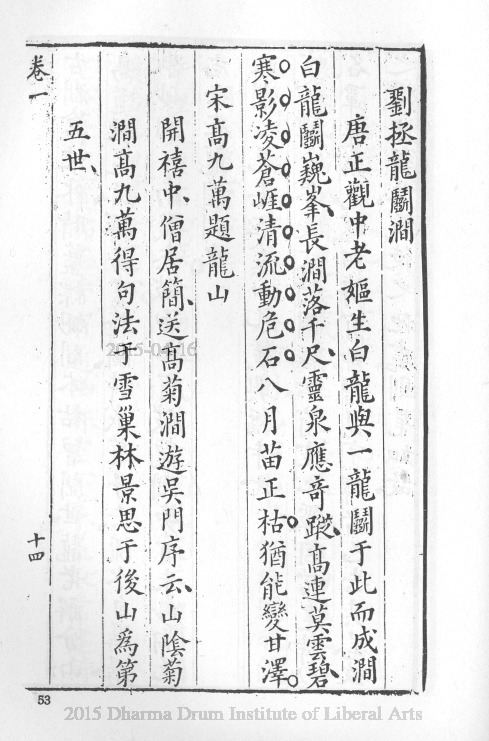 劉拯龍鬭澗
唐正觀中老嫗生白龍與一龍鬭于此而成澗
白龍鬭巍峯、長澗落千尺、靈泉應奇蹤、高連莫雲碧、
寒影凌蒼崕清流動危石八月苗正枯猶能變甘澤
宋高九萬題龍山
開禧中、僧居簡、送高菊澗遊吳門序云、山陰菊
澗高九萬得句法于雪巢林景思于後山為第
五世、
卷一
十四
2015-04-16
53
2015 Dharma Drum Institute of Liberal Arts